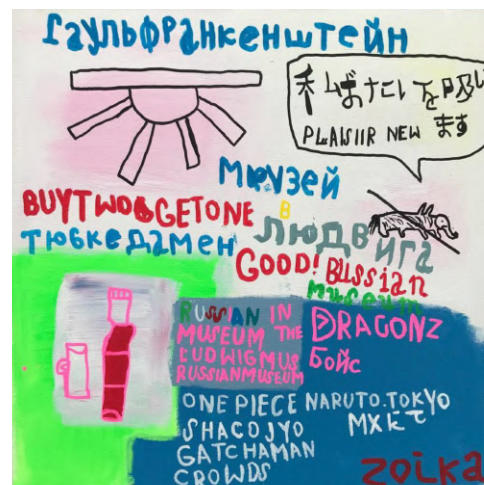 ГАУЛЬФРАНКЕНШТЕЙН
私ばたしを吸い
PLAISIIR NEW ます
МЮУЗЕЙ
BUYTWO&GETONE
В
ТЮБКЕДАМЕН
ЛЮДВИГА
GOOD! BUSSIAN
RUSSIAN IN
MUSEUM THE
LUDWIGMUS
RUSSIANMUSEUM
DRAGONZ
БОЙС
ONE PIECE NARUTO.TOKYO
SHACOJYO
GATCHAMAN
CROWDS
zoika